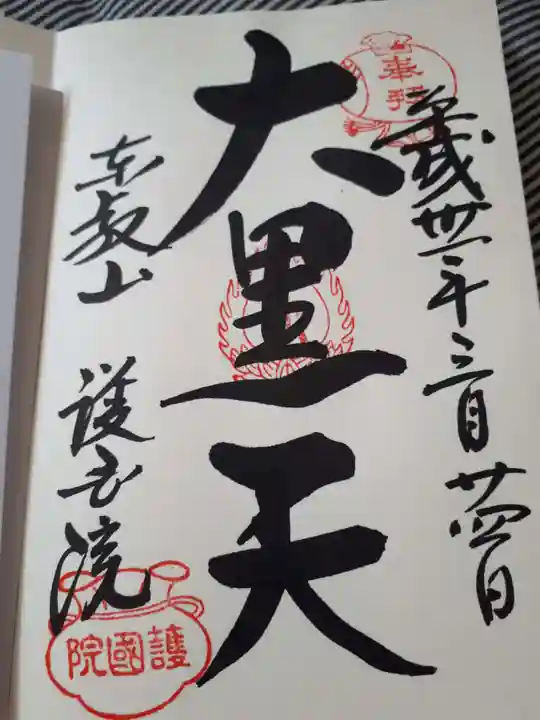 奉拝
平成卅一年三月廿四日
大黒天
東叡山 護国院
護國院